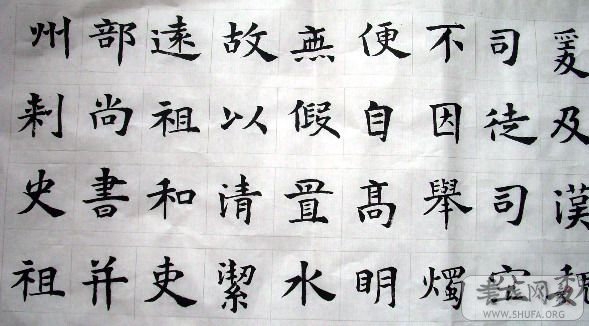 爰及漢魏
司徒司空
不因舉燭
便自髙明
無假置水
故以清潔
遠祖和吏
部尚書并
州刺史祖
书法网
WWW.SHUFA.ORG